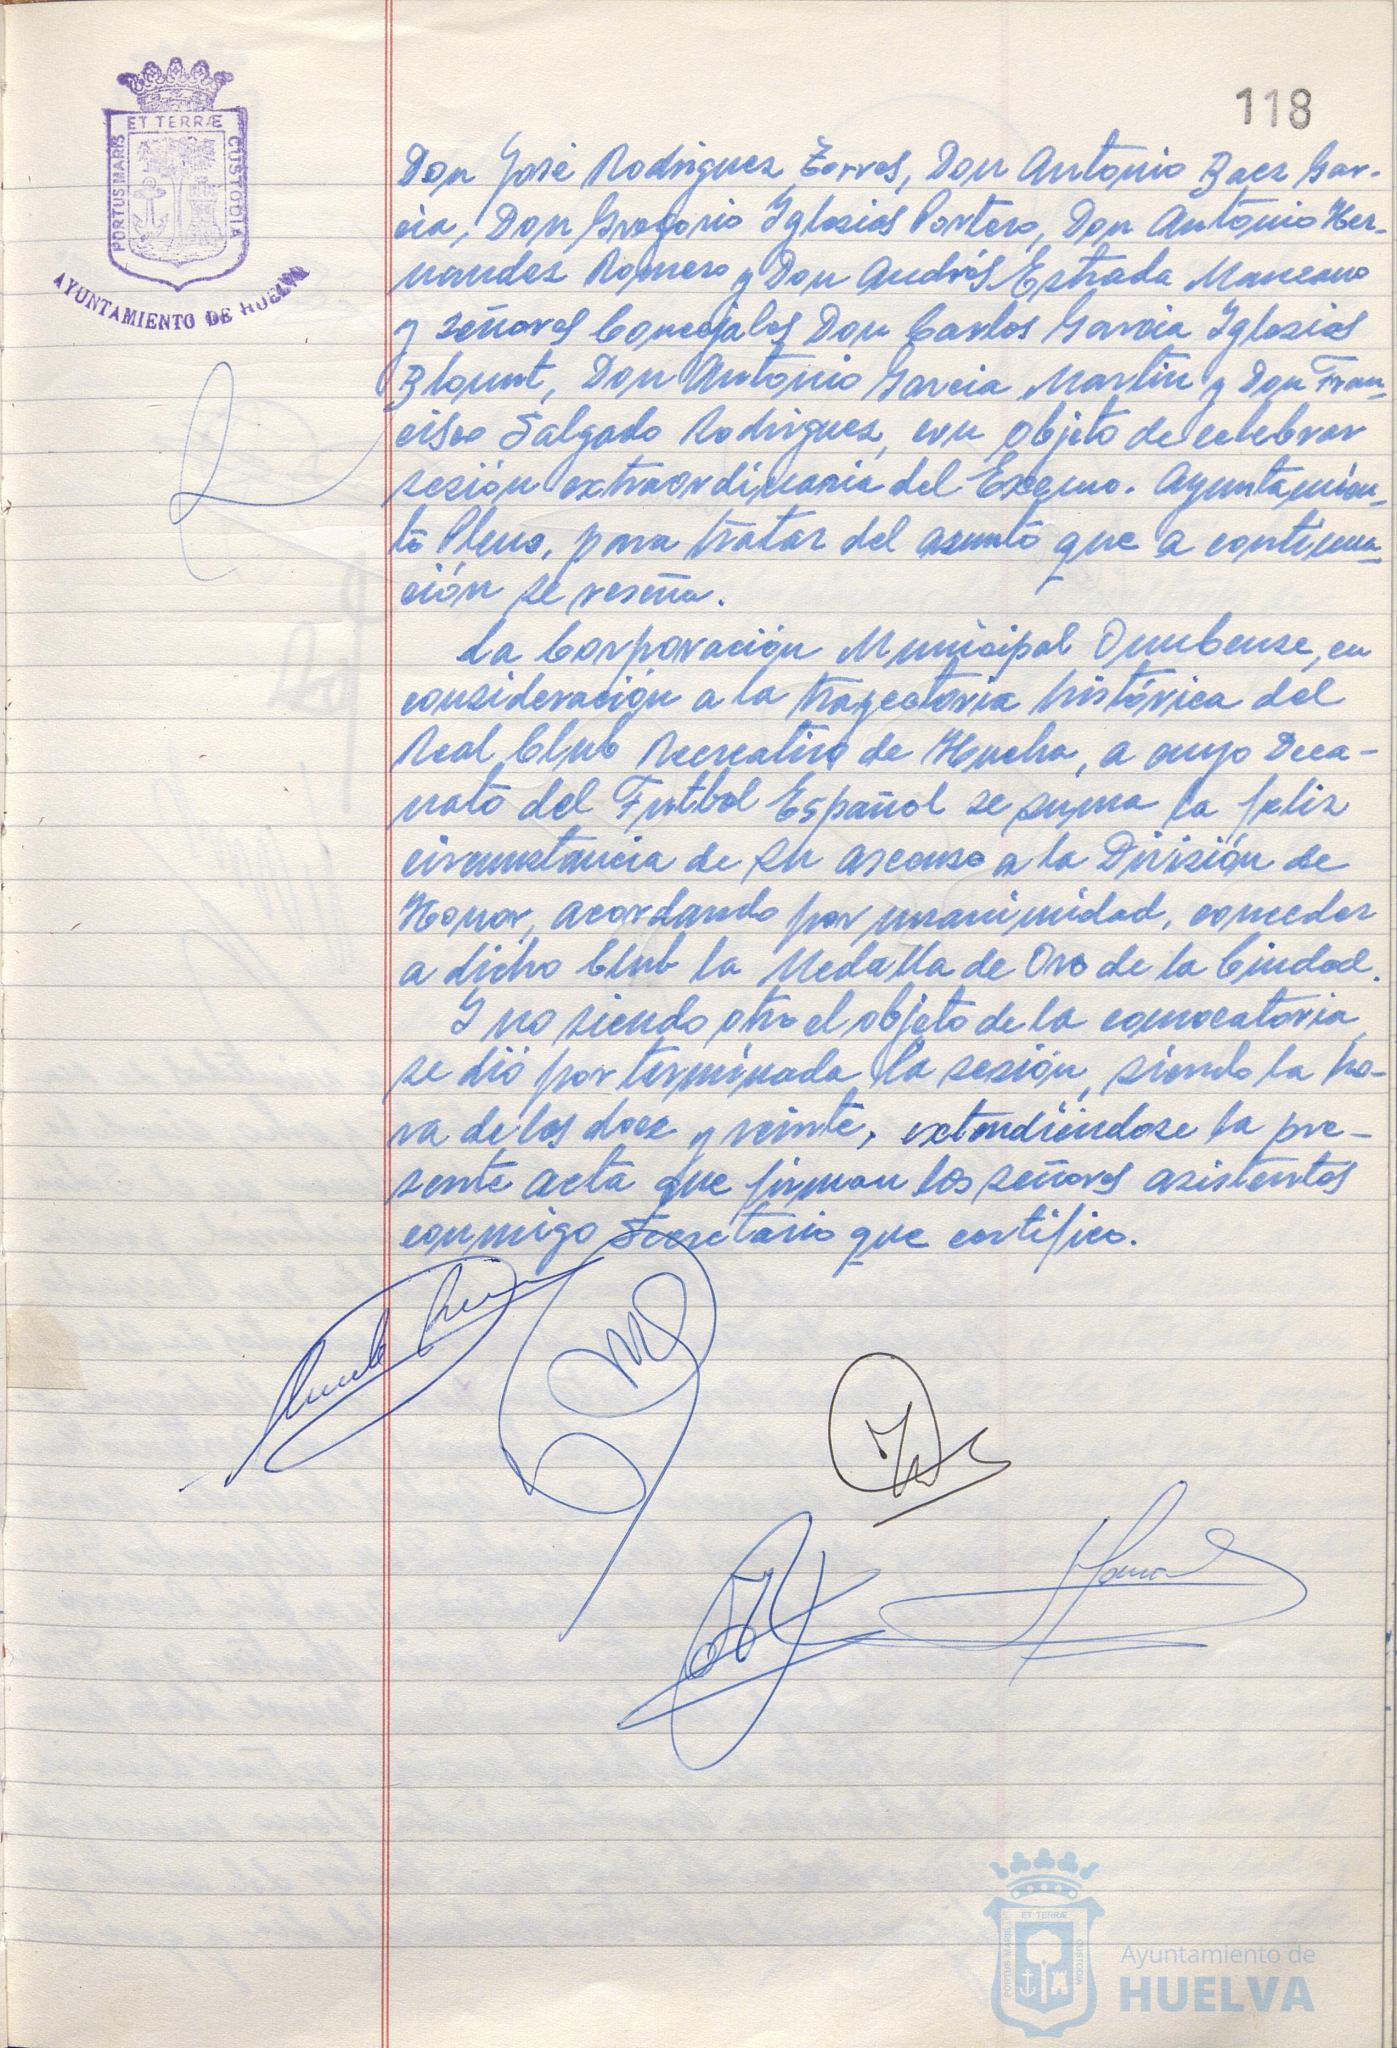 118
ET TERRÆ
PORTUS MARIS
CUSTODIA
AYUNTAMIENTO DE HUELVA
Don José Rodriguez Torres, Don Antonio Baez Gar-
cia, Don Gregorio Iglesias Portero, Don Antonio Her-
nandez Romero y Don Andrés Estrada Manzano
y señores Concejales Don Carlos Garcia Iglesias
Blount, Don Antonio Garcia Martin y Don Fran-
cisco Salgado Rodriguez, con objeto de celebrar
sesión extraordinaria del Excmo. Ayuntamien-
to Pleno, para tratar del asunto que a continua-
ción se reseña.
La Corporación Municipal Onubense, en
consideración a la trayectoria histórica del
Real Club Recreativo de Huelva, a cuyo Deca-
nato del Futbol Español se suma la feliz
circunstancia de su ascenso a la División de
Honor, acordando por unanimidad, conceder
a dicho Club la Medalla de Oro de la Ciudad.
Y no siendo otro el objeto de la convocatoria
se dió por terminada la sesión, siendo la ho-
ra de las doce y veinte, extendiéndose la pre-
sente acta que firman los señores asistentes
conmigo Secretario que certifico.
ET TERRÆ
PORTUS MARIS
CUSTODIA
Ayuntamiento de
HUELVA